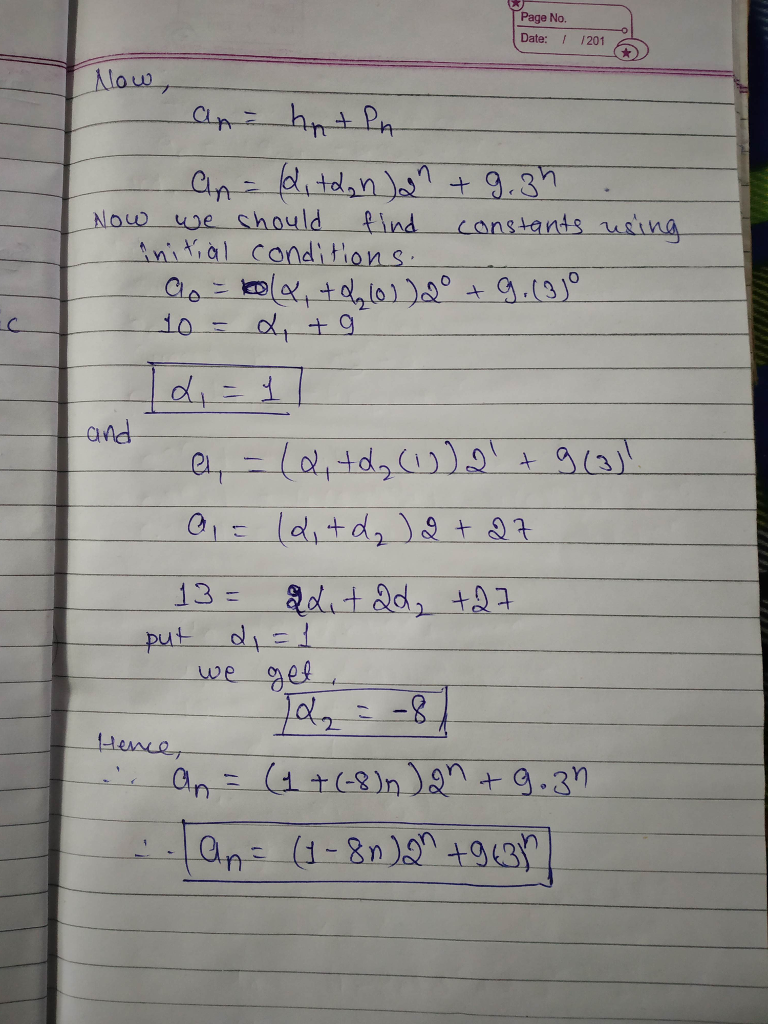 Page No.
Date: / /201
Now,
aₙ = hₙ + Pₙ
aₙ = (α₁+α₂n)2ⁿ + 9.3ⁿ .
Now we should find constants using
initial conditions.
a₀ = (α₁ + α₂(0))2⁰ + 9.(3)⁰
10 = α₁ + 9
α₁ = 1
and
a₁ = (α₁+α₂(1))2¹ + 9(3)¹
a₁ = (α₁+α₂)2 + 27
13 = 2α₁ + 2α₂ +27
put α₁ = 1
we get,
α₂ = -8
Hence,
∴ aₙ = (1 +(-8)n)2ⁿ + 9.3ⁿ
∴ aₙ = (1-8n)2ⁿ +9(3)ⁿ
c